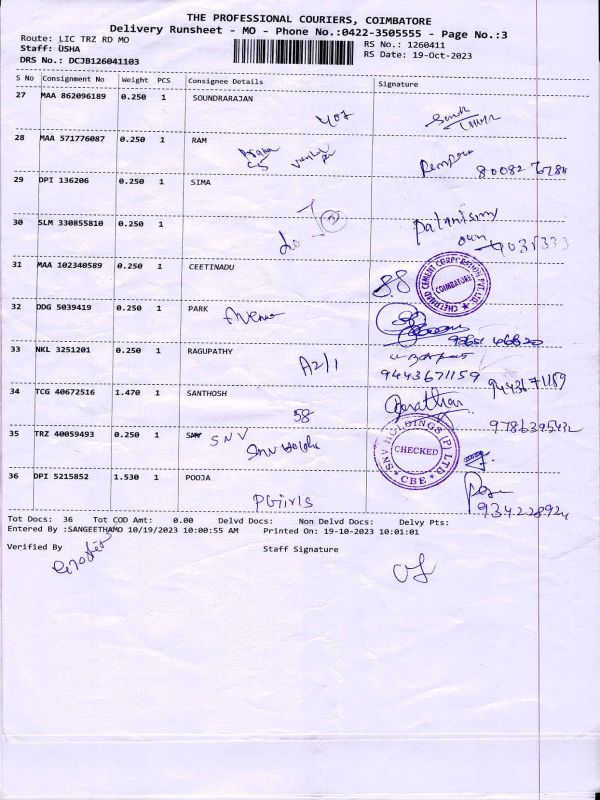 THE PROFESSIONAL COURIERS, COIMBATORE
Delivery Runsheet - MO - Phone No.:0422-3505555 - Page No.:3
Route: LIC TRZ RD MO
RS No.: 1260411
Staff: USHA
RS Date: 19-Oct-2023
DRS No.: DCJB126041103
S No Consignment No Weight PCS Consignee Details Signature
27 MAA 862096189 0.250 1 SOUNDRARAJAN
28 MAA 571776087 0.250 1 RAM
29 DPI 136206 0.250 1 SIMA
30 SLM 330855810 0.250 1
31 MAA 102340589 0.250 1 CEETINADU
88
CHETTINAD CEMENT CORPORATION PVT. LTD.
COIMBATORE
32 DDG 5039419 0.250 1 PARK
Avenue
33 NKL 3251201 0.250 1 RAGUPATHY
A2/1
9443671159
9443671159
34 TCG 40672516 1.470 1 SANTHOSH
58
35 TRZ 40059493 0.250 1 SNV
SNV
SNV Holdings
SNV HOLDINGS (P) LTD.
CHECKED
CBE
36 DPI 5215852 1.530 1 POOJA
PGirls
Tot Docs: 36 Tot COD Amt: 0.00 Delvd Docs: Non Delvd Docs: Delvy Pts:
Entered By :SANGEETHAMO 10/19/2023 10:00:55 AM Printed On: 19-10-2023 10:01:01
Verified By Staff Signature